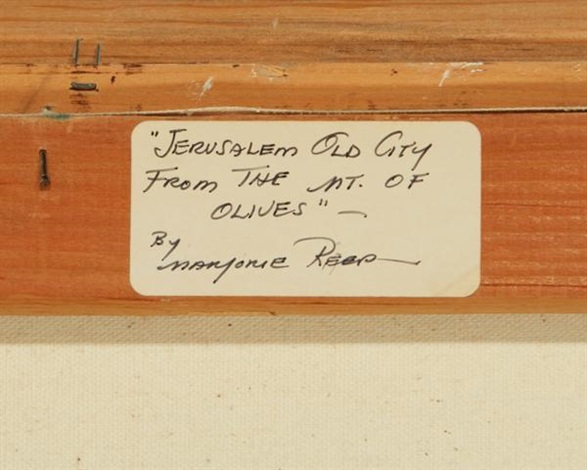 "JERUSALEM OLD CITY
FROM THE MT. OF
OLIVES" —
By
MARJORIE REED